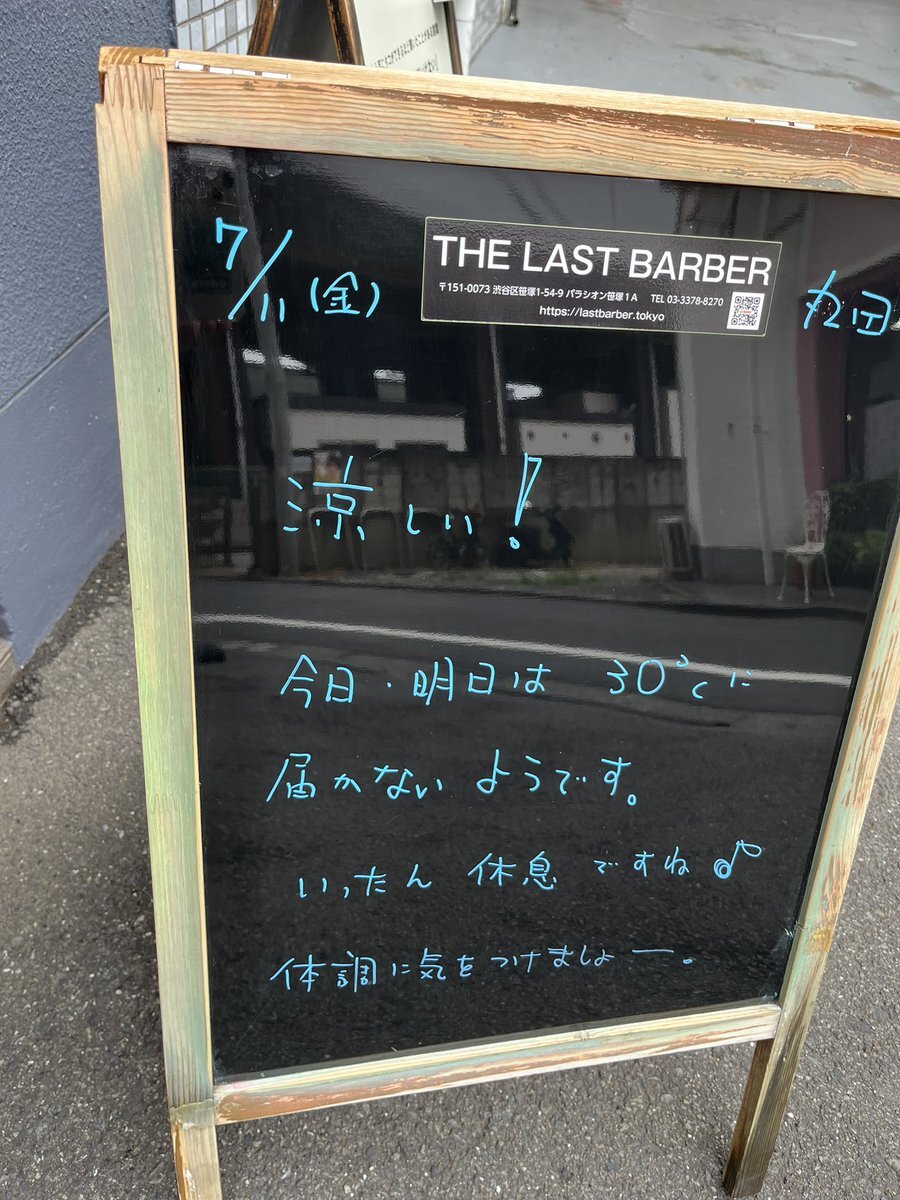 7/11(金)
THE LAST BARBER
〒151-0073 渋谷区笹塚1-54-9 パラシオン笹塚1A TEL 03-3378-8270
https://lastbarber.tokyo
丸田
涼しい!
今日・明日は 30℃に
届かない ようです。
いったん 休息 ですね♪
体調に気をつけましょー。